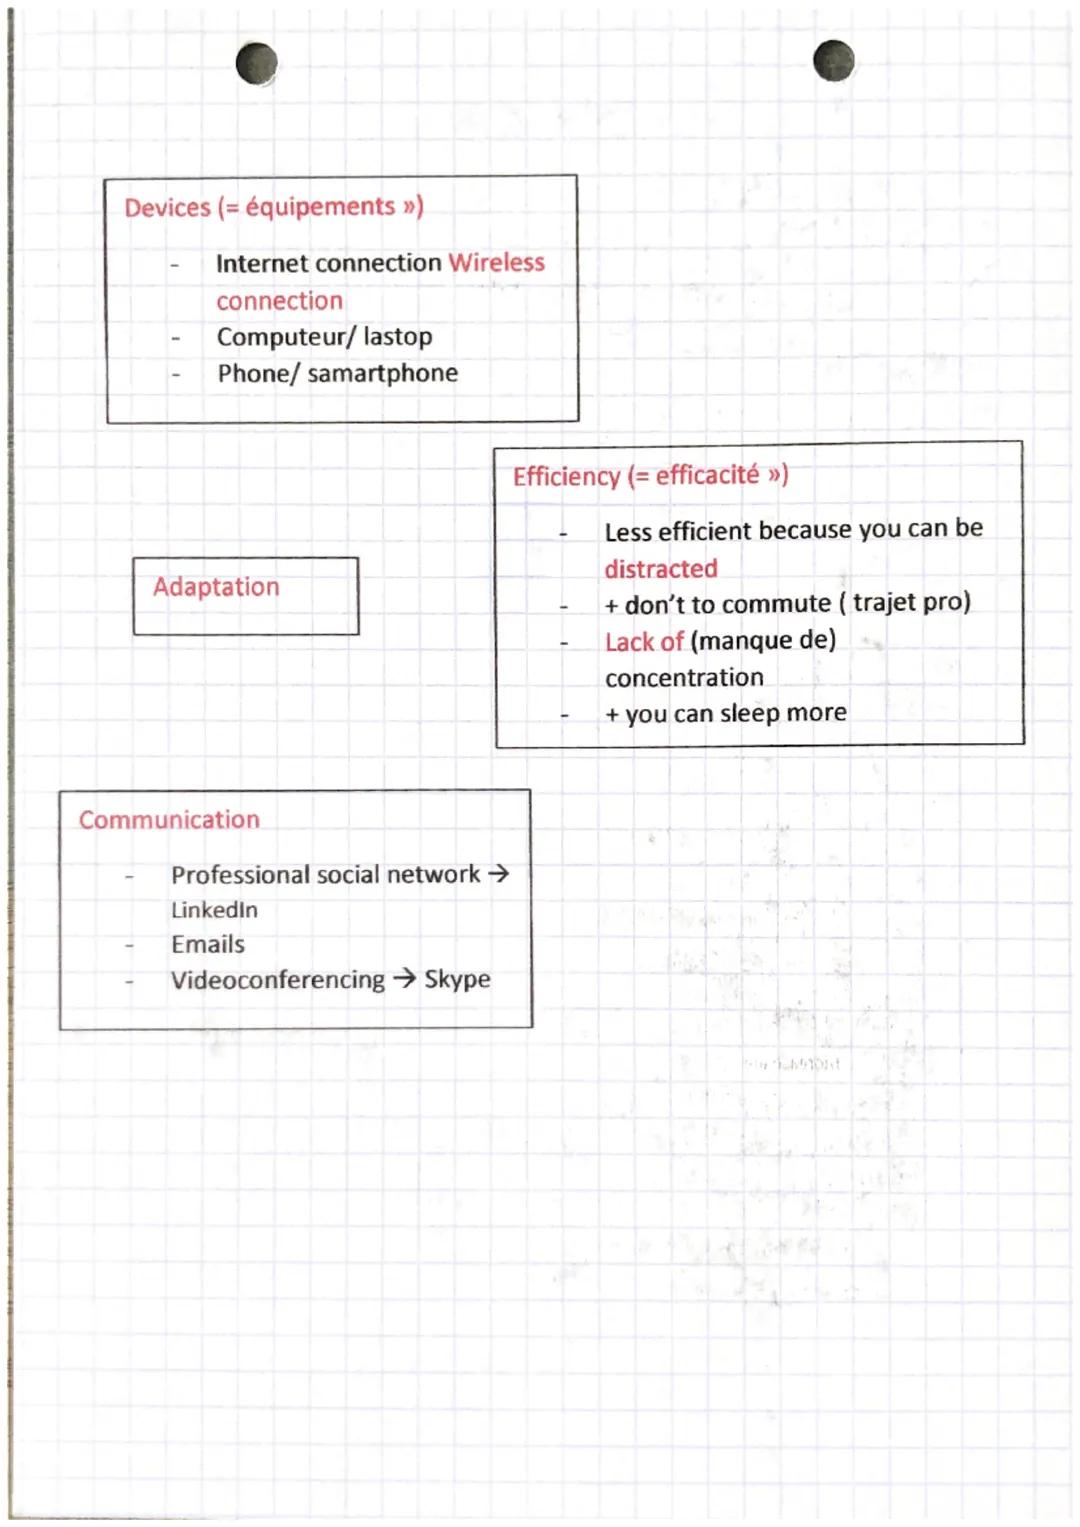 Devices (= équipements »)
- Internet connection Wireless
connection
- Computeur/ lastop
- Phone/ samartphone
Efficiency (= efficacité »)
- Less efficient because you can be
distracted
- + don't to commute ( trajet pro)
- Lack of (manque de)
concentration
- + you can sleep more
Adaptation
Communication
- Professional social network →
LinkedIn
- Emails
- Videoconferencing → Skype